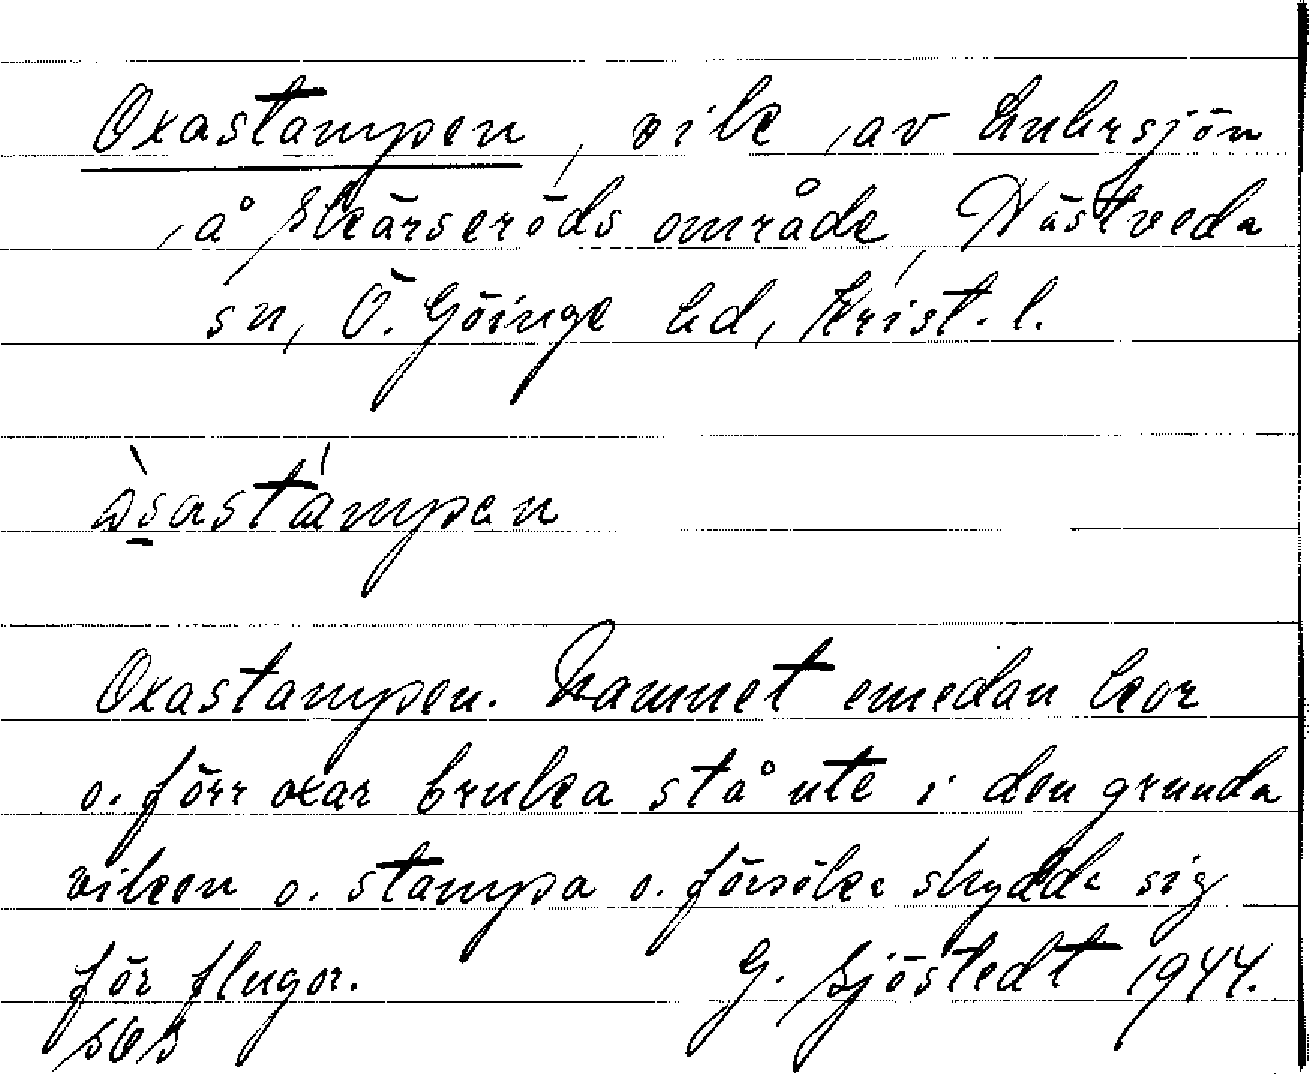 Oxastampen, vik av Luhrsjön
å Skärseröds område, Hästveda
sn, Ö. Göinge hd, Krist. l.
ɷ̀sastámpen
Oxastampen. Namnet emedan kor
o. förr oxar bruka stå ute i den grunda
viken o. stampa o. försöka skydda sig
för flugor. G. Sjöstedt 1944.